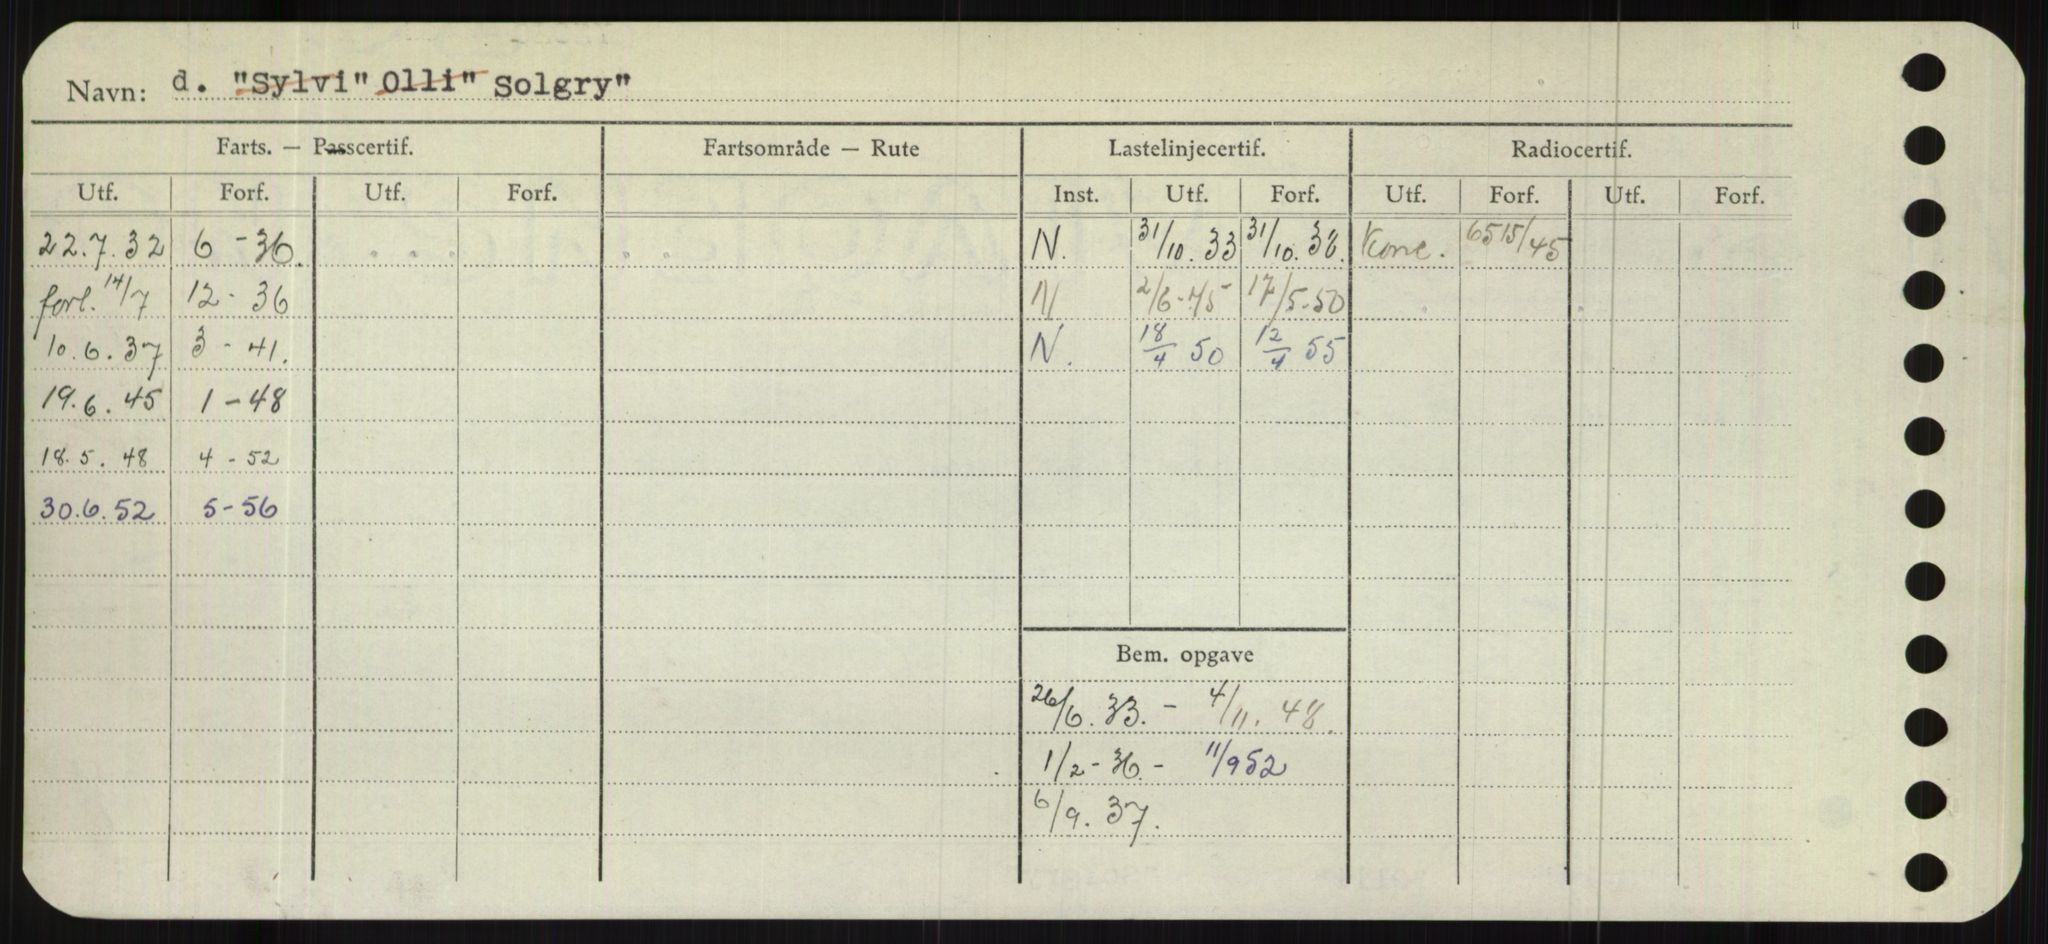 Navn: d. "Sylvi" Olli" Solgry"
Farts. — Passcertif. Fartsområde — Rute Lastelinjecertif. Radiocertif.
Utf. Forf. Utf. Forf. Inst. Utf. Forf. Utf. Forf. Utf. Forf.
22.7.32 6-36. N. 31/10.33 31/10.38. Konc. 6515/45
forl. 14/7 12-36 N 2/6-45 17/5-50
10.6.37 3-41. N. 18/4 50 12/4 55
19.6.45 1-48
18.5.48 4-52
30.6.52 5-56
Bem. opgave
26/6.33. - 4/11.48.
1/2-36.- 11/952
6/9.37.